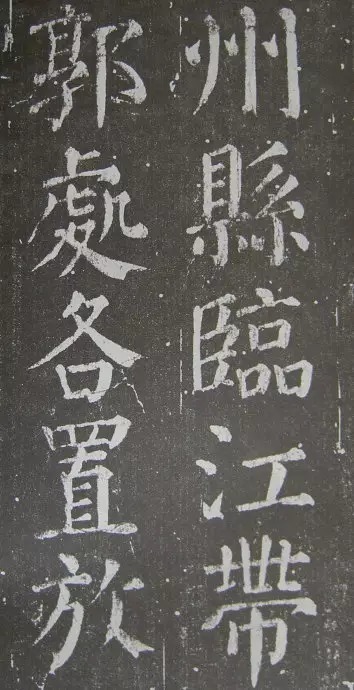 州縣臨江帶
郭處各置放